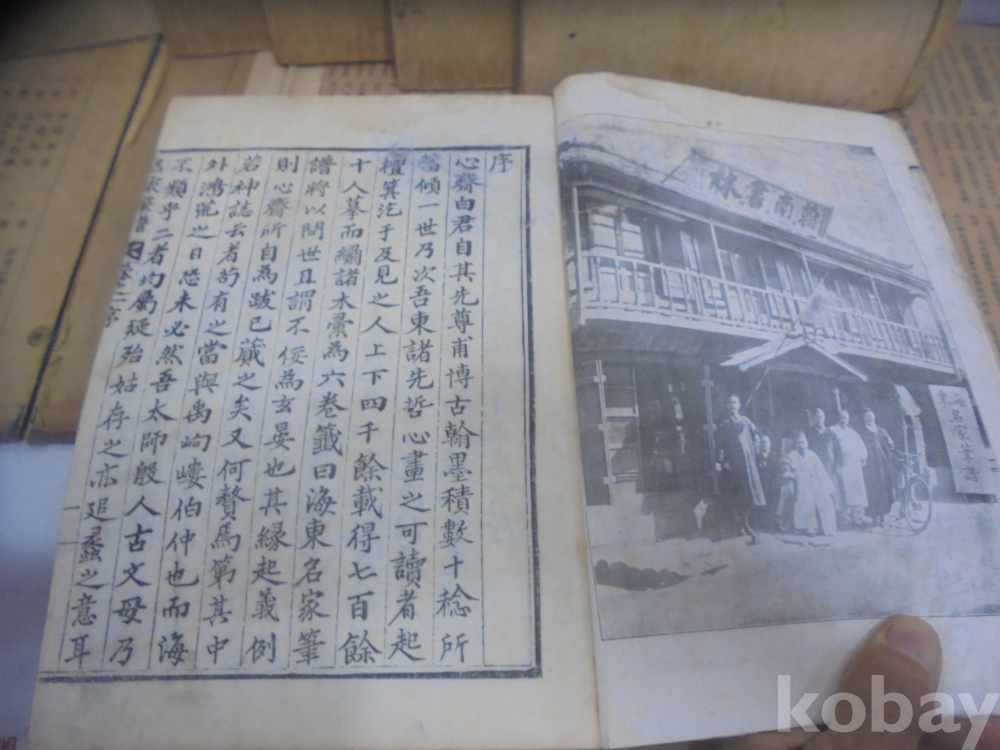 序
心齋白君自其先尊甫博古翰墨積數十稔所
蓄傾一世乃次吾東諸先哲心畫之可讀者起
檀箕汔于及見之人上下四千餘載得七百餘
十人摹而繡諸木彙為六卷籤曰海東名家筆
譜將以問世且謂不佞為玄晏也其緣起義例
則心齋所自為跋已蕆之矣又何贅焉第其中
若神誌云者苟有之當與禹岣嶁伯仲也而海
外鴻荒之日恐未必然吾太師殷人古文毋乃
不類乎二者均屬疑殆姑存之亦追蠡之意耳
卷二序
翰南書林
海東名家筆譜
kobay